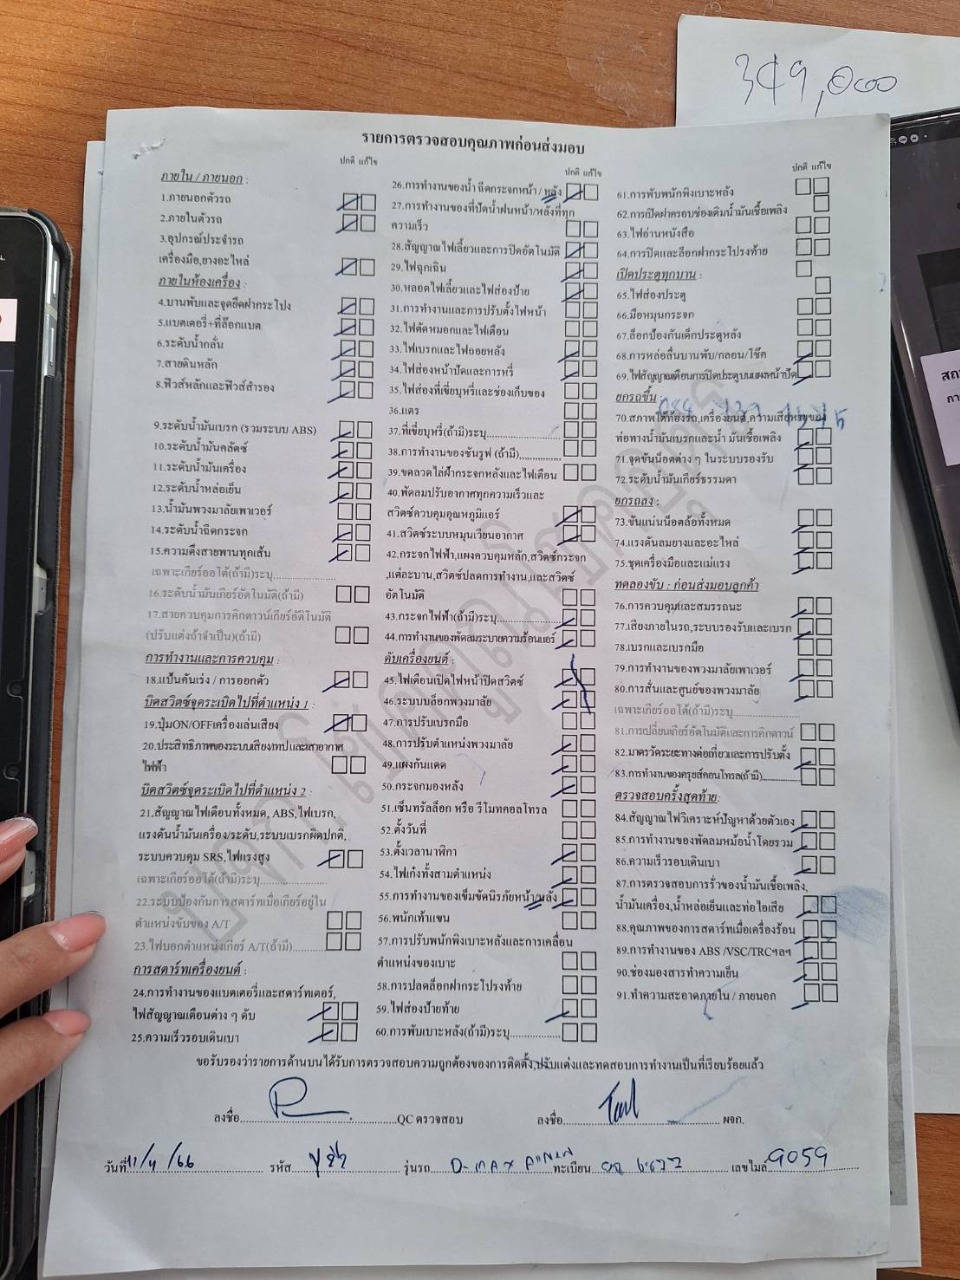 349,000
รายการตรวจสอบคุณภาพก่อนส่งมอบ
ปกติ แก้ไข
ภายใน / ภายนอก :
1.ภายนอกตัวรถ
2.ภายในตัวรถ
3.อุปกรณ์ประจำรถ
เครื่องมือ,ยางอะไหล่
ภายในห้องเครื่อง :
4.บานพับและจุดยึดฝากระโปง
5.แบตเตอรี่+ที่ล๊อกแบต
6.ระดับน้ำกลั่น
7.สายดินหลัก
8.ฟิวส์หลักและฟิวส์สำรอง
9.ระดับน้ำมันเบรก (รวมระบบ ABS)
10.ระดับน้ำมันคลัตซ์
11.ระดับน้ำมันเครื่อง
12.ระดับน้ำหล่อเย็น
13.น้ำมันพวงมาลัยเพาเวอร์
14.ระดับน้ำฉีดกระจก
15.ความตึงสายพานทุกเส้น
เฉพาะเกียร์ออโต้(ถ้ามี)ระบุ
16.ระดับน้ำมันเกียร์อัตโนมัติ(ถ้ามี)
17.สายควบคุมการคิกดาวน์เกียร์อัติโนมัติ
(ปรับแต่งถ้าจำเป็น)(ถ้ามี)
การทำงานและการควบคุม :
18.แป้นคันเร่ง / การออกตัว
บิดสวิตซ์จุดระเบิดไปที่ตำแหน่ง 1 :
19.ปุ่มON/OFFเครื่องเล่นเสียง
20.ประสิทธิภาพของระบบเสียงเทปและเสาอากาศ
ไฟฟ้า
บิดสวิตซ์จุดระเบิดไปที่ตำแหน่ง 2 :
21.สัญญาณไฟเตือนทั้งหมด, ABS,ไฟเบรก,
แรงดันน้ำมันเครื่อง/ระดับ,ระบบเบรกผิดปกติ,
ระบบควบคุม SRS,ไฟแรงสูง
เฉพาะเกียร์ออโต้(ถ้ามี)ระบุ
22.ระบบป้องกันการสตาร์ทเมื่อเกียร์อยู่ใน
ตำแหน่งขับของ A/T
23.ไฟบอกตำแหน่งเกียร์ A/T(ถ้ามี)
การสตาร์ทเครื่องยนต์ :
24.การทำงานของแบตเตอรี่และสตาร์ทเตอร์,
ไฟสัญญาณเตือนต่าง ๆ ดับ
25.ความเร็วรอบเดินเบา
ปกติ แก้ไข
26.การทำงานของน้ำ ฉีดกระจกหน้า / หลัง
27.การทำงานของที่ปัดน้ำฝนหน้า/หลังที่ทุก
ความเร็ว
28.สัญญาณไฟเลี้ยวและการปิดอัตโนมัติ
29.ไฟฉุกเฉิน
30.หลอดไฟเลี้ยวและไฟส่องป้าย
31.การทำงานและการปรับตั้งไฟหน้า
32.ไฟตัดหมอกและไฟเตือน
33.ไฟเบรกและไฟถอยหลัง
34.ไฟส่องหน้าปัดและการหรี่
35.ไฟส่องที่เขี่ยบุหรี่และช่องเก็บของ
36.แตร
37.ที่เขี่ยบุหรี่(ถ้ามี)ระบุ
38.การทำงานของซันรูฟ (ถ้ามี)
39.ขดลวดไล่ฝ้ากระจกหลังและไฟเตือน
40.พัดลมปรับอากาศทุกความเร็วและ
สวิตซ์ควบคุมอุณหภูมิแอร์
41.สวิตซ์ระบบหมุนเวียนอากาศ
42.กระจกไฟฟ้า,แผงควบคุมหลัก,สวิตซ์กระจก
แต่ละบาน,สวิตซ์ปลดการทำงาน,และสวิตซ์
อัตโนมัติ
43.กระจกไฟฟ้า(ถ้ามี)ระบุ
44.การทำงานของพัดลมระบายความร้อนแอร์
ดับเครื่องยนต์ :
45.ไฟเตือนเปิดไฟหน้าปิดสวิตซ์
46.ระบบบล็อกพวงมาลัย
47.การปรับเบรกมือ
48.การปรับตำแหน่งพวงมาลัย
49.แผงกันแดด
50.กระจกมองหลัง
51.เซ็นทรัลล๊อก หรือ รีโมทคอลโทรล
52.ตั้งวันที่
53.ตั้งเวลานาฬิกา
54.ไฟเก๋งทั้งสามตำแหน่ง
55.การทำงานของเข็มขัดนิรภัยหน้า/หลัง
56.พนักเท้าแขน
57.การปรับพนักพิงเบาะหลังและการเคลื่อน
ตำแหน่งของเบาะ
58.การปลดล็อกฝากระโปรงท้าย
59.ไฟส่องป้ายท้าย
60.การพับเบาะหลัง(ถ้ามี)ระบุ
ปกติ แก้ไข
61.การพับพนักพิงเบาะหลัง
62.การเปิดฝาครอบช่องเติมน้ำมันเชื้อเพลิง
63.ไฟอ่านหนังสือ
64.การปิดและล็อกฝากระโปรงท้าย
เปิดประตูทุกบาน :
65.ไฟส่องประตู
66.มือหมุนกระจก
67.ล็อกป้องกันเด็กประตูหลัง
68.การหล่อลื่นบานพับ/กลอน/โช๊ค
69.ไฟสัญญาณเตือนการปิดประตูบนแผงหน้าปัด
ยกรถขึ้น :
70.สภาพใต้ท้องรถ,เครื่องยนต์,ความเสียหายของ
ท่อทางน้ำมันเบรกและน้ำ มันเชื้อเพลิง
71.จุดขันน็อตต่าง ๆ ในระบบรองรับ
72.ระดับน้ำมันเกียร์ธรรมดา
ยกรถลง :
73.ขันแน่นน็อตล้อทั้งหมด
74.แรงดันลมยางและอะไหล่
75.ชุดเครื่องมือและแม่แรง
ทดลองขับ : ก่อนส่งมอบลูกค้า
76.การควบคุมและสมรรถนะ
77.เสียงภายในรถ,ระบบรองรับและเบรก
78.เบรกและเบรกมือ
79.การทำงานของพวงมาลัยเพาเวอร์
80.การสั่นและศูนย์ของพวงมาลัย
เฉพาะเกียร์ออโต้(ถ้ามี)ระบุ
81.การเปลี่ยนเกียร์อัตโนมัติและการคิกดาวน์
82.มาตรวัดระยะทางต่อเที่ยวและการปรับตั้ง
83.การทำงานของครุยส์คอนโทรล(ถ้ามี)
ตรวจสอบครั้งสุดท้าย:
84.สัญญาณไฟวิเคราะห์ปัญหาด้วยตัวเอง
85.การทำงานของพัดลมหม้อน้ำโดยรวม
86.ความเร็วรอบเดินเบา
87.การตรวจสอบการรั่วของน้ำมันเชื้อเพลิง,
น้ำมันเครื่อง,น้ำหล่อเย็นและท่อไอเสีย
88.คุณภาพของการสตาร์ทเมื่อเครื่องร้อน
89.การทำงานของ ABS /VSC/TRCฯลฯ
90.ช่องมองสารทำความเย็น
91.ทำความสะอาดภายใน / ภายนอก
ขอรับรองว่ารายการด้านบนได้รับการตรวจสอบความถูกต้องของการติดตั้ง,ปรับแต่งและทดสอบการทำงานเป็นที่เรียบร้อยแล้ว
ลงชื่อ QC ตรวจสอบ ลงชื่อ ผจก.
วันที่ 11/4/66 รหัส รุ่นรถ D-MAX ทะเบียน เลขไมล์ 9059